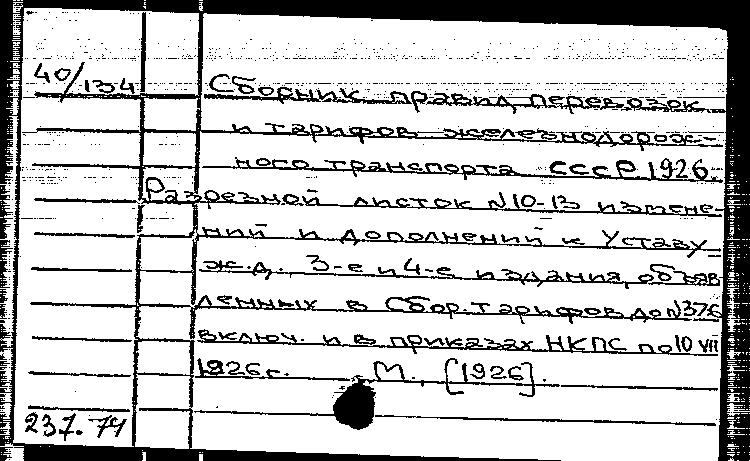 40/134
Сборник правил, перевозок
и тарифов железнодорож-
ного транспорта СССР 1926.
Разрезной листок №10-13 измене-
ний и дополнений к Уставу
ж.д. 3-е и 4-е издания, объяв
ленных в Сбор. тарифов до №376
включ. и в приказах НКПС по 10 VII
1926 г. М., [1926].
237.74